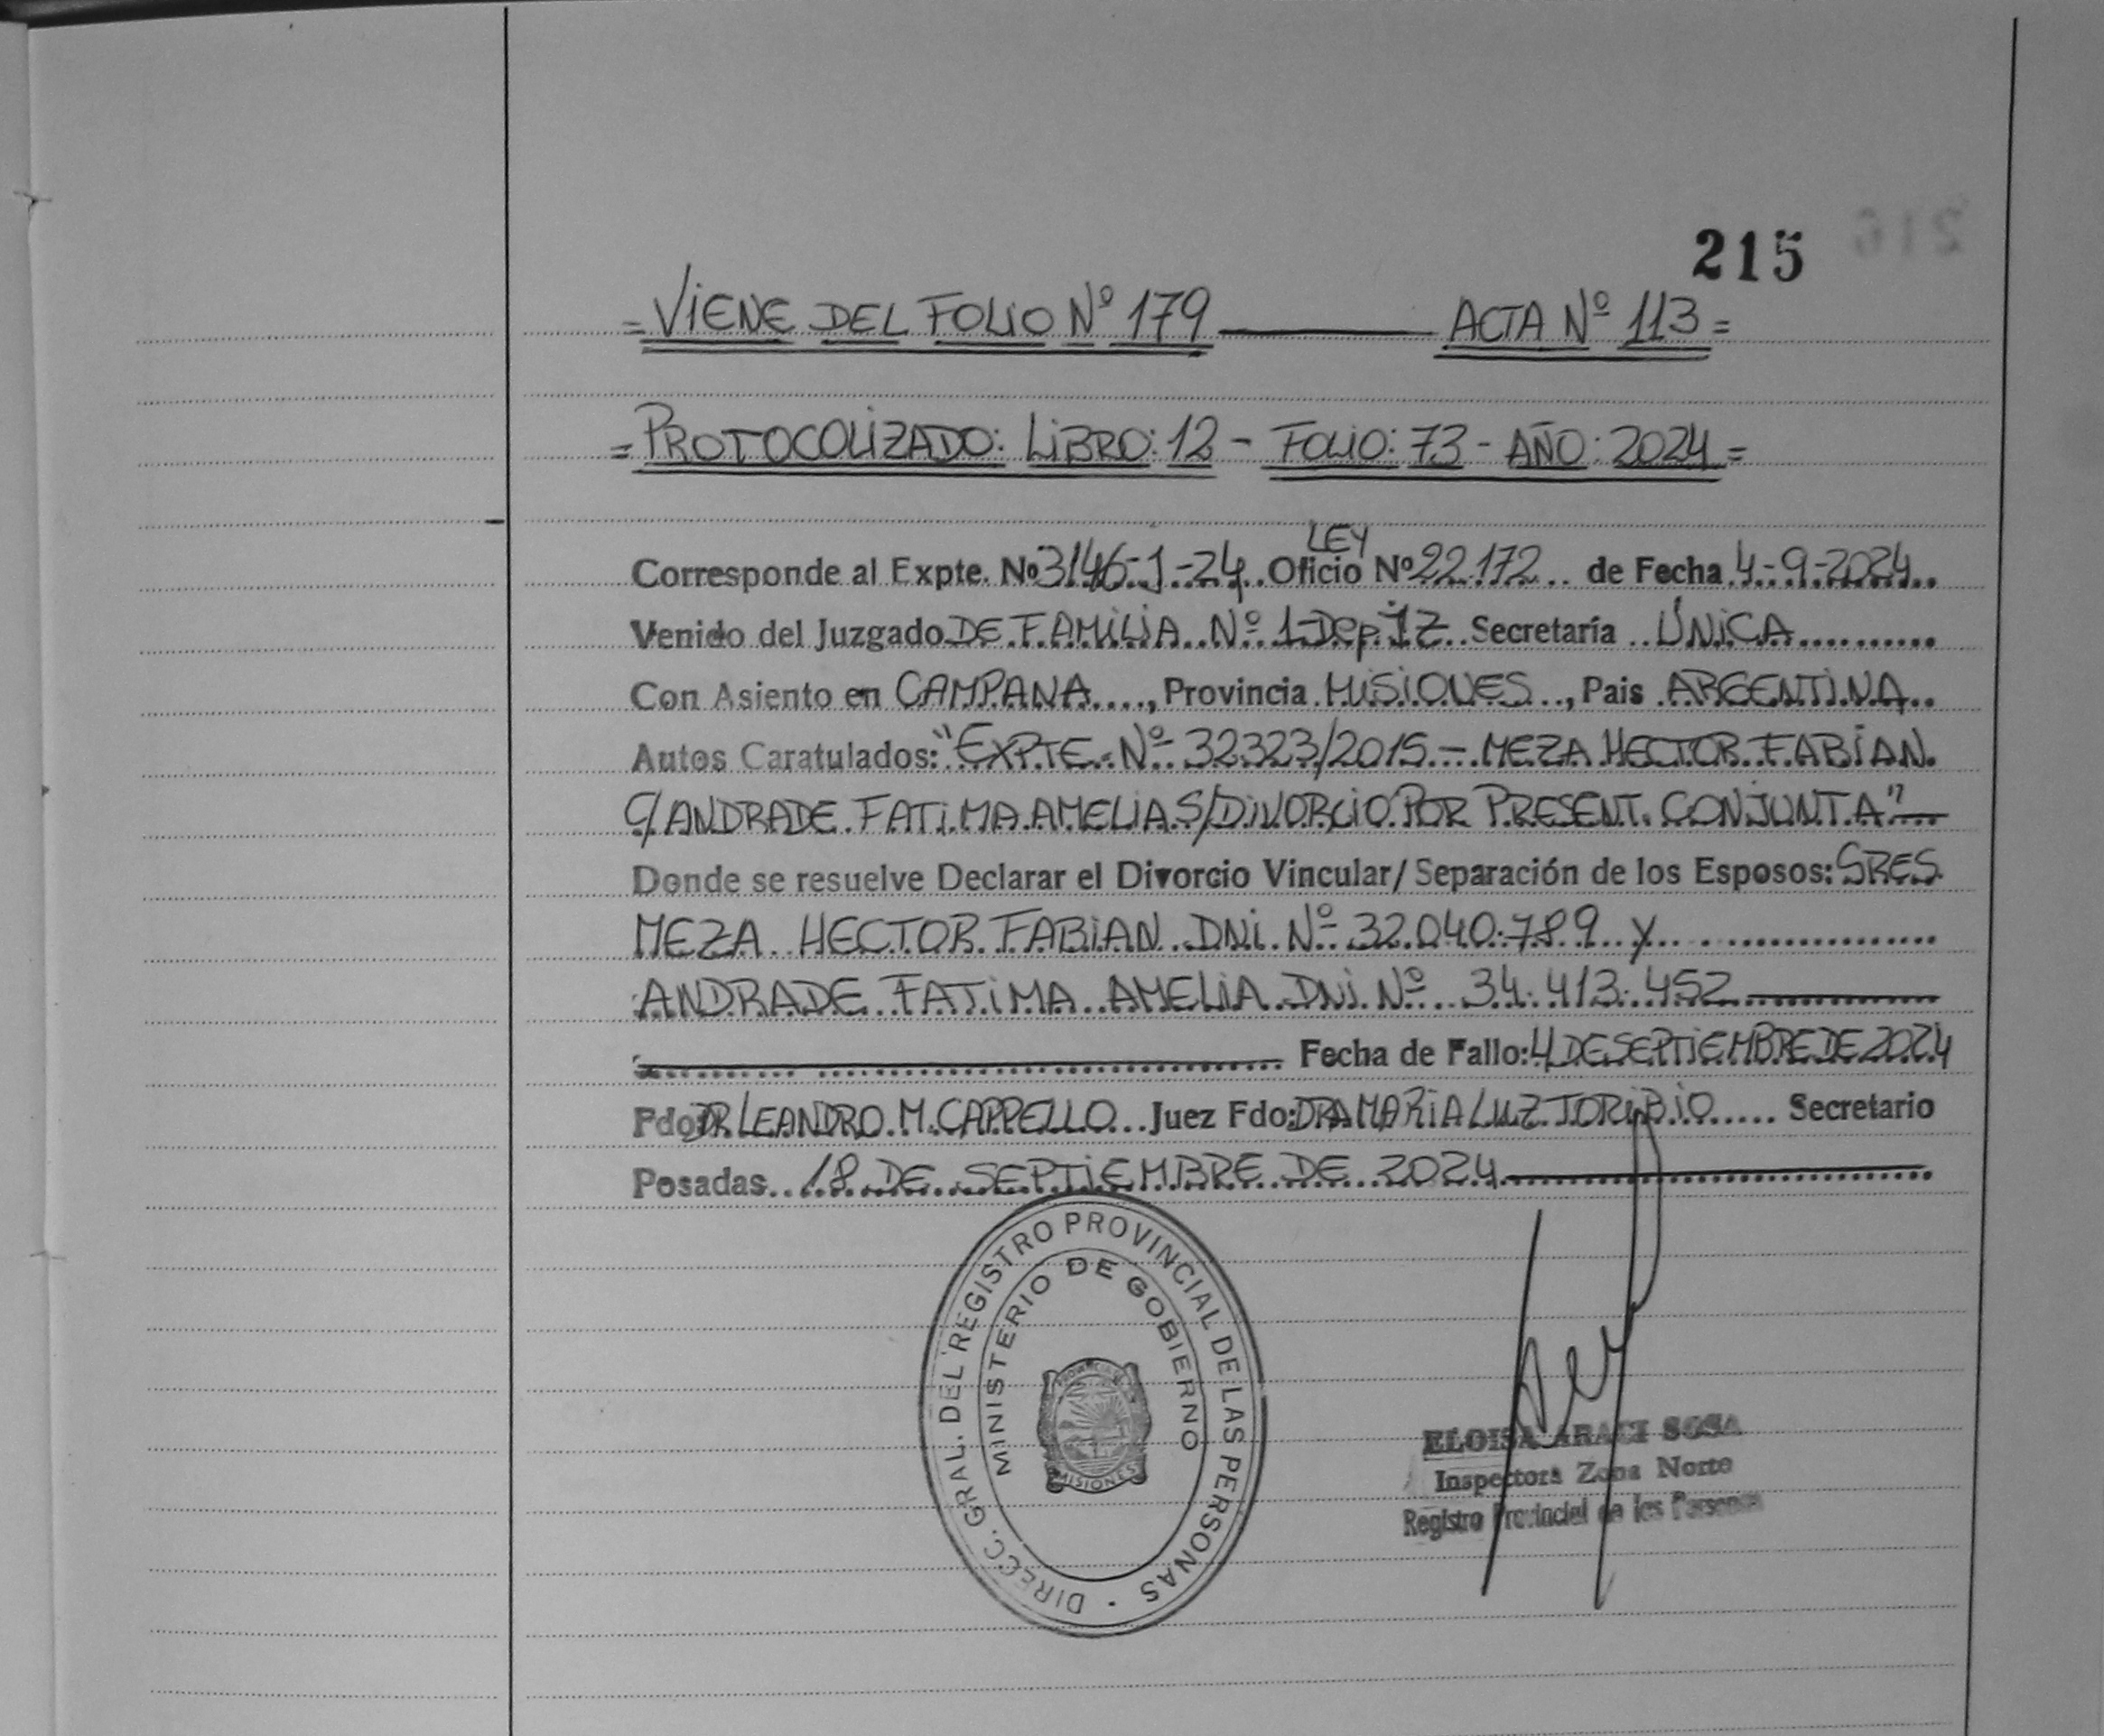 215
= VIENE DEL FOLIO Nº 179 ——— ACTA Nº 113 =
= PROTOCOLIZADO: LIBRO: 12 - FOLIO: 73 - AÑO: 2024 =
LEY
Corresponde al Expte. Nº 3146-J-24 Oficio Nº 22.172 de Fecha 4-9-2024
Venido del Juzgado DE FAMILIA Nº 1 Secretaría ÚNICA
Con Asiento en CAMPANA, Provincia MISIONES, Pais ARGENTINA
Autos Caratulados: "EXPTE. Nº 32323/2015 - MEZA HECTOR FABIAN
C/ ANDRADE FATIMA AMELIA S/ DIVORCIO POR PRESENT. CONJUNTA"
Donde se resuelve Declarar el Divorcio Vincular/ Separación de los Esposos: SRES
MEZA HECTOR FABIAN DNI Nº 32.040.789 y
ANDRADE FATIMA AMELIA DNI Nº 34.413.452
Fecha de Fallo: 4 DE SEPTIEMBRE DE 2024
Fdo: DR LEANDRO M. CAPPELLO Juez Fdo: DRA MARIA LUZ TORIBIO Secretario
Posadas 18 DE SEPTIEMBRE DE 2024
DIRECC. GRAL. DEL REGISTRO PROVINCIAL DE LAS PERSONAS
MINISTERIO DE GOBIERNO
MISIONES
ELOISA ARACI SOSA
Inspectora Zona Norte
Registro Provincial de las Personas